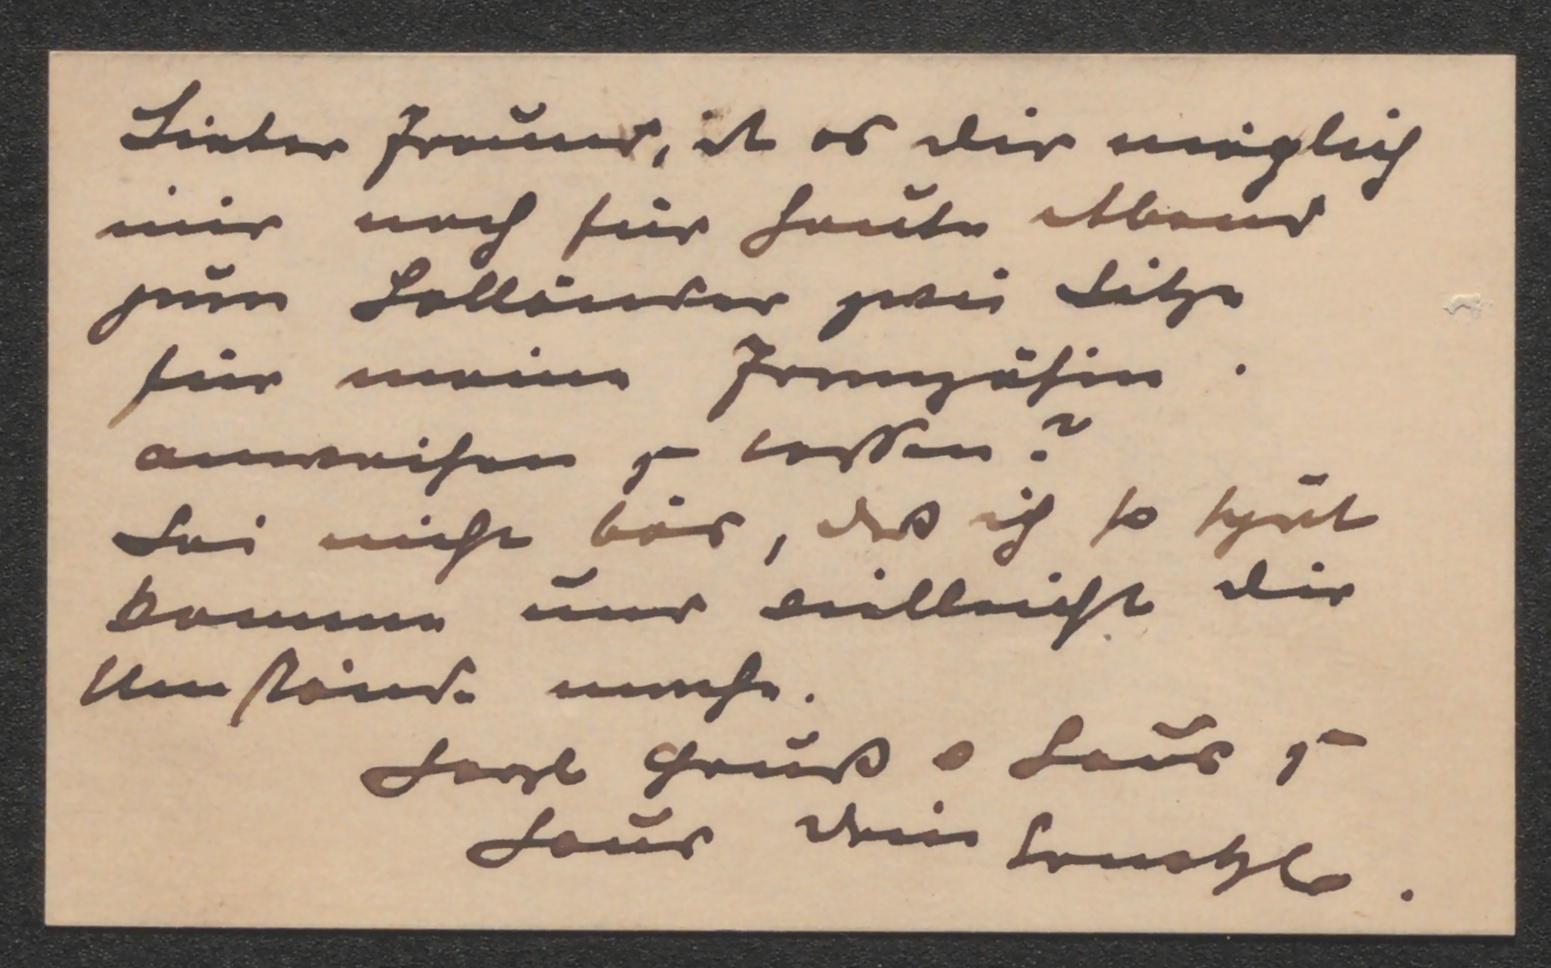 Lieber Freund, ist es dir möglich
mir noch für heute Abend
zum Holländer zwei Sitze
für meine Französin
anweisen zu lassen?
Sei nicht bös, daß ich so spät
komme und vielleicht dir
Umstände mache.
Herzl Gruß v Haus zu
Haus dein